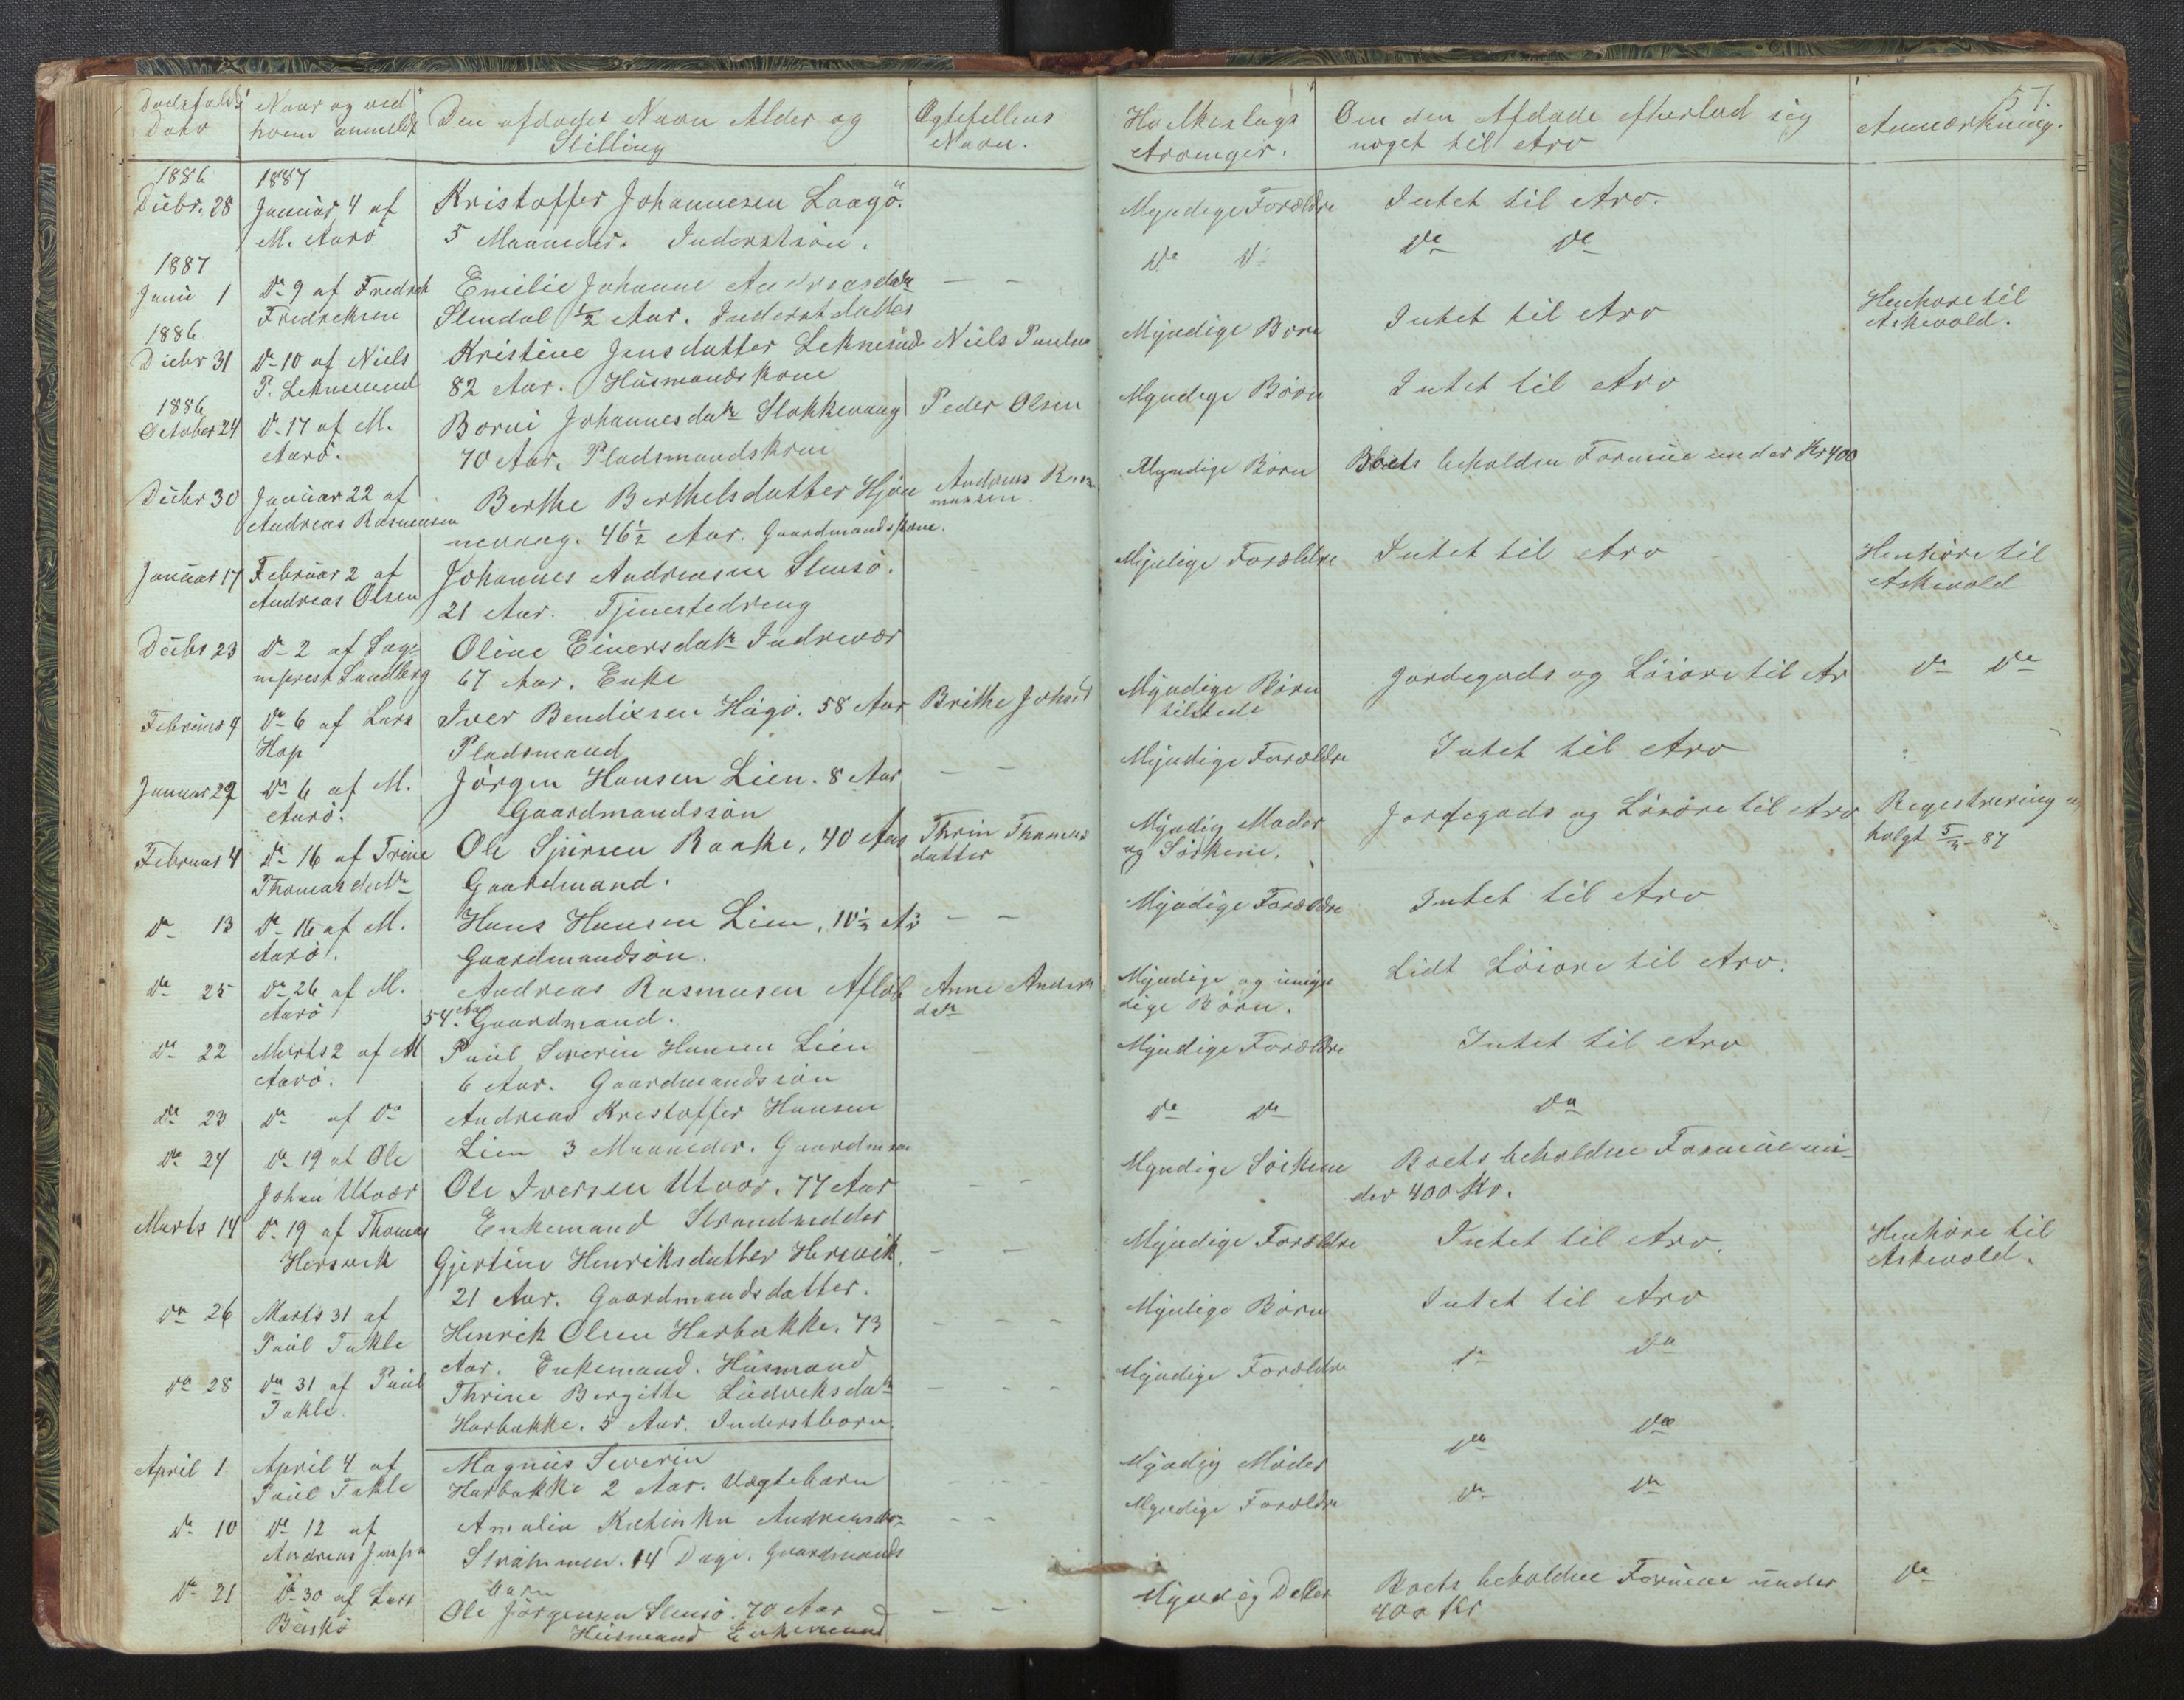 57.
Dødsfalds Dato
Naar og ved hvem anmeldt
Den afdødes Navn Alder og Stilling
Ægtefellens Navn.
Hvilkeslags Arvinger.
Om den Afdøde efterlod sig noget til Arv
Anmærkning.
1886 1887
Decbr. 28 Januar 4 af Kristoffer Johannesen Laagö. Myndige Forældre Intet til Arv.
M. Aarö 5 Maaneder. Inderstsøn.
1887
Janu 1 Do 9 af Fredrek Emilie Johanne Andreasdatr — — Do Do Do Do
Fredreksen Stendal ½ Aar. Inderstdatter
1886
Decbr 31 Do 10 af Niels Kristine Jensdatter Leknesund Niels Paulsen Myndige Børn Intet til Arv Henhøre til
P. Leknesund 82 Aar. Husmandskone Askevold.
1886
October 24 Do 17 af M. Borni Johannesdatr Stokkevaag Peder Olsen Myndige Børn Intet til Arv
Aarö. 70 Aar. Pladsmandskone
Decbr 30 Januar 22 af Berthe Berthelsdatter Hjøn Andreas Ras Myndige Børn Boets beholden Formue under Kr 400
Andreas Rasmussen nevaag. 46½ Aar. Gaardmandskone. mussen
Januar 17 Februar 2 af Johannes Andreasen Stensö. — Myndige Forældre Intet til Arv Henhøre til
Andreas Olsen 21 Aar. Tjenestedreng Askevold
Decbr 23 Do 2 af Sog= Oline Einersdatr Indrevær Myndige Børn Jordegods og Løsøre til Ar Do Do
neprest Sandberg 67 Aar. Enke tilstede
Februar 4 Do 6 af Lars Iver Bendixsen Hágö. 58 Aar Brithe Johsd
Hop Pladsmand
Januar 29 Do 6 af M. Jörgen Hansen Lien. 8 Aar — — Myndige Forældre Intet til Arv
Aarö. Gaardmandssön
Februar 4 Do 16 af Trine Ole Sjursen Raake, 40 Aar Thrin Thomas Myndig Moder Jordegods og Løsøre til Arv Regestrering af
Thomasdatr Gaardmand. datter og Söskene. holgt 5/3 - 87
Do 13 Do 16 af M. Hans Hansen Lien, 10½ Ar — — Myndige Forældre Intet til Arv
Aarö. Gaardmandsön.
Do 25 Do 26 af M. Andreas Rasmusen Aflöb Anne Anders Myndige og umyn Lidt Løsøre til Arv.
Aarö 54 Aar Gaardmand. datr dige Børn.
Do 22 Marts 2 af M Paul Severin Hansen Lien — Myndige Forældre Intet til Arv
Aarö. 6 Aar. Gaardmandssön
Do 23 Do af Do Andreas Kristoffer Hansen Do Do Do
Lien 3 Maaneder. Gaardmsøn
Do 24 Do 19 af Ole Ole Iversen Utvær. 77 Aar — — Myndige Söskene Boets beholdne Formue un=
Johan Utvær Enkemand Strandsidder der 400 Kr.
Marts 14 Do 19 af Thomas Gjertine Henriksdatter Hersvik. — — Myndige Forældre Intet til Arv. Henhøre til
Hersvik 21 Aar. Gaardmandsdatter. Askevold.
Do 26 Marts 31 af Henrik Olsen Harbakke. 73 — — — Myndige Børn Intet til Arv
Paul Takle Aar. Enkemand. Husmand
Do 28 Do 31 af Paul Thrine Bergitte Ludveksdatr — — — Myndige Forældre Do Do
Takle. Harbakke. 5 Aar. Inderstbarn.
April 1 April 4 af Magnus Severin — — Myndig Moder Do Do
Paul Takle Harbakke 2 Aar. Uægtebarn
Do 10 Do 12 af Amalia Katinka Andreasdr — — Myndige Forældre Do Do
Andreas Straumen. 14 Dage. Gaardmands
barn
Do 21 Do 30 af Lars Ole Jörgensen Stensö. 70 Aar — — Myndig Datter Boets beholdne Formue under Do
Buskö Husmand Enkemand 400 Kr